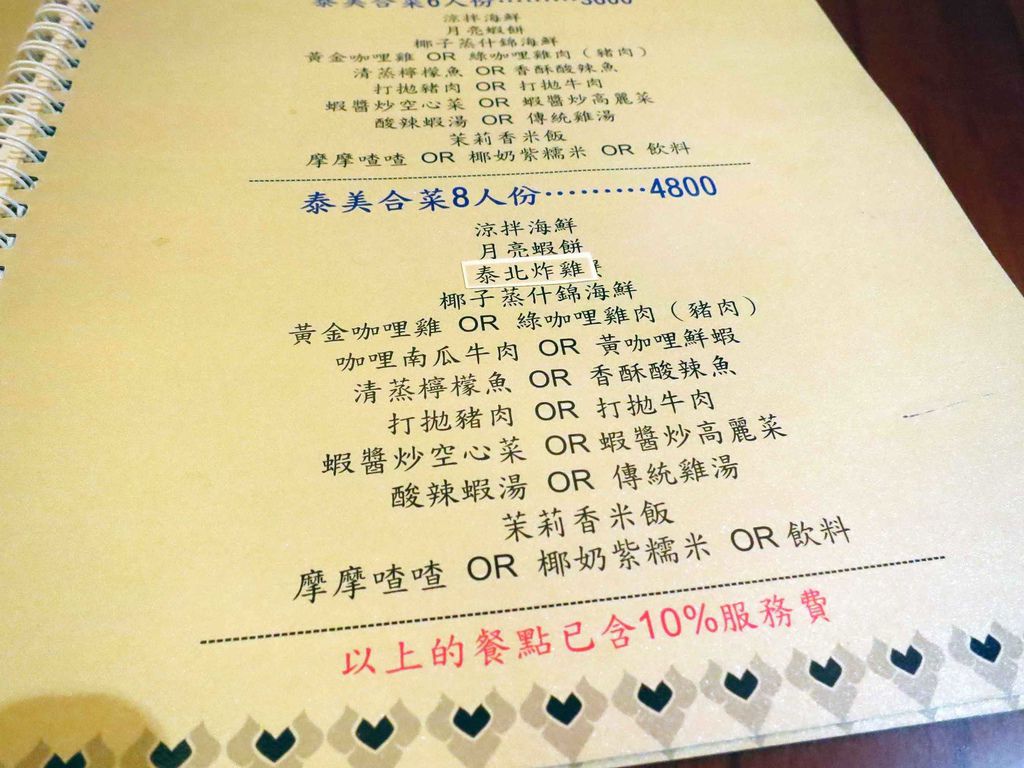 泰美合菜6人份………3600
涼拌海鮮
月亮蝦餅
椰子蒸什錦海鮮
黃金咖哩雞 OR 綠咖哩雞肉（豬肉）
清蒸檸檬魚 OR 香酥酸辣魚
打拋豬肉 OR 打拋牛肉
蝦醬炒空心菜 OR 蝦醬炒高麗菜
酸辣蝦湯 OR 傳統雞湯
茉莉香米飯
摩摩喳喳 OR 椰奶紫糯米 OR 飲料
泰美合菜8人份………4800
涼拌海鮮
月亮蝦餅
泰北炸雞
椰子蒸什錦海鮮
黃金咖哩雞 OR 綠咖哩雞肉（豬肉）
咖哩南瓜牛肉 OR 黃咖哩鮮蝦
清蒸檸檬魚 OR 香酥酸辣魚
打拋豬肉 OR 打拋牛肉
蝦醬炒空心菜 OR 蝦醬炒高麗菜
酸辣蝦湯 OR 傳統雞湯
茉莉香米飯
摩摩喳喳 OR 椰奶紫糯米 OR 飲料
以上的餐點已含10%服務費